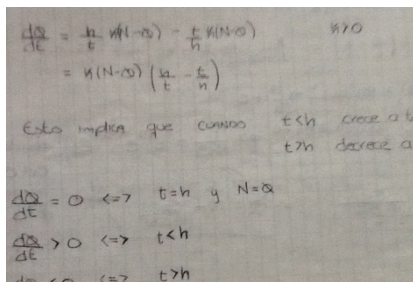 dQ/dt = h/t κ(N-Q) - t/h κ(N-Q) κ>0
= κ(N-Q) (h/t - t/h)
Esto implica que cuando t<h crece a t
t>h decrece a
dQ/dt = 0 <=> t=h y N=Q
dQ/dt > 0 <=> t<h
<=> t>h